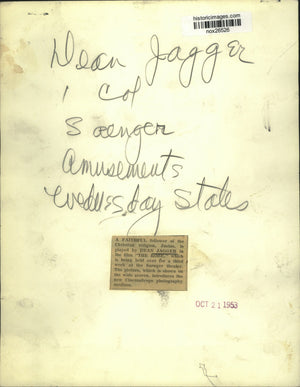 historicimages.com
nox26526
Dean Jagger
1 Col
Saenger
Amusements
Wednesday States
A FAITHFUL follower of the
Christian religion, Justus, is
played by DEAN JAGGER in
the film "THE ROBE," which
is being held over for a third
week at the Saenger theater.
The picture, which is shown on
the wide screen, introduces the
new CinemaScope photography
medium.
OCT 21 1953